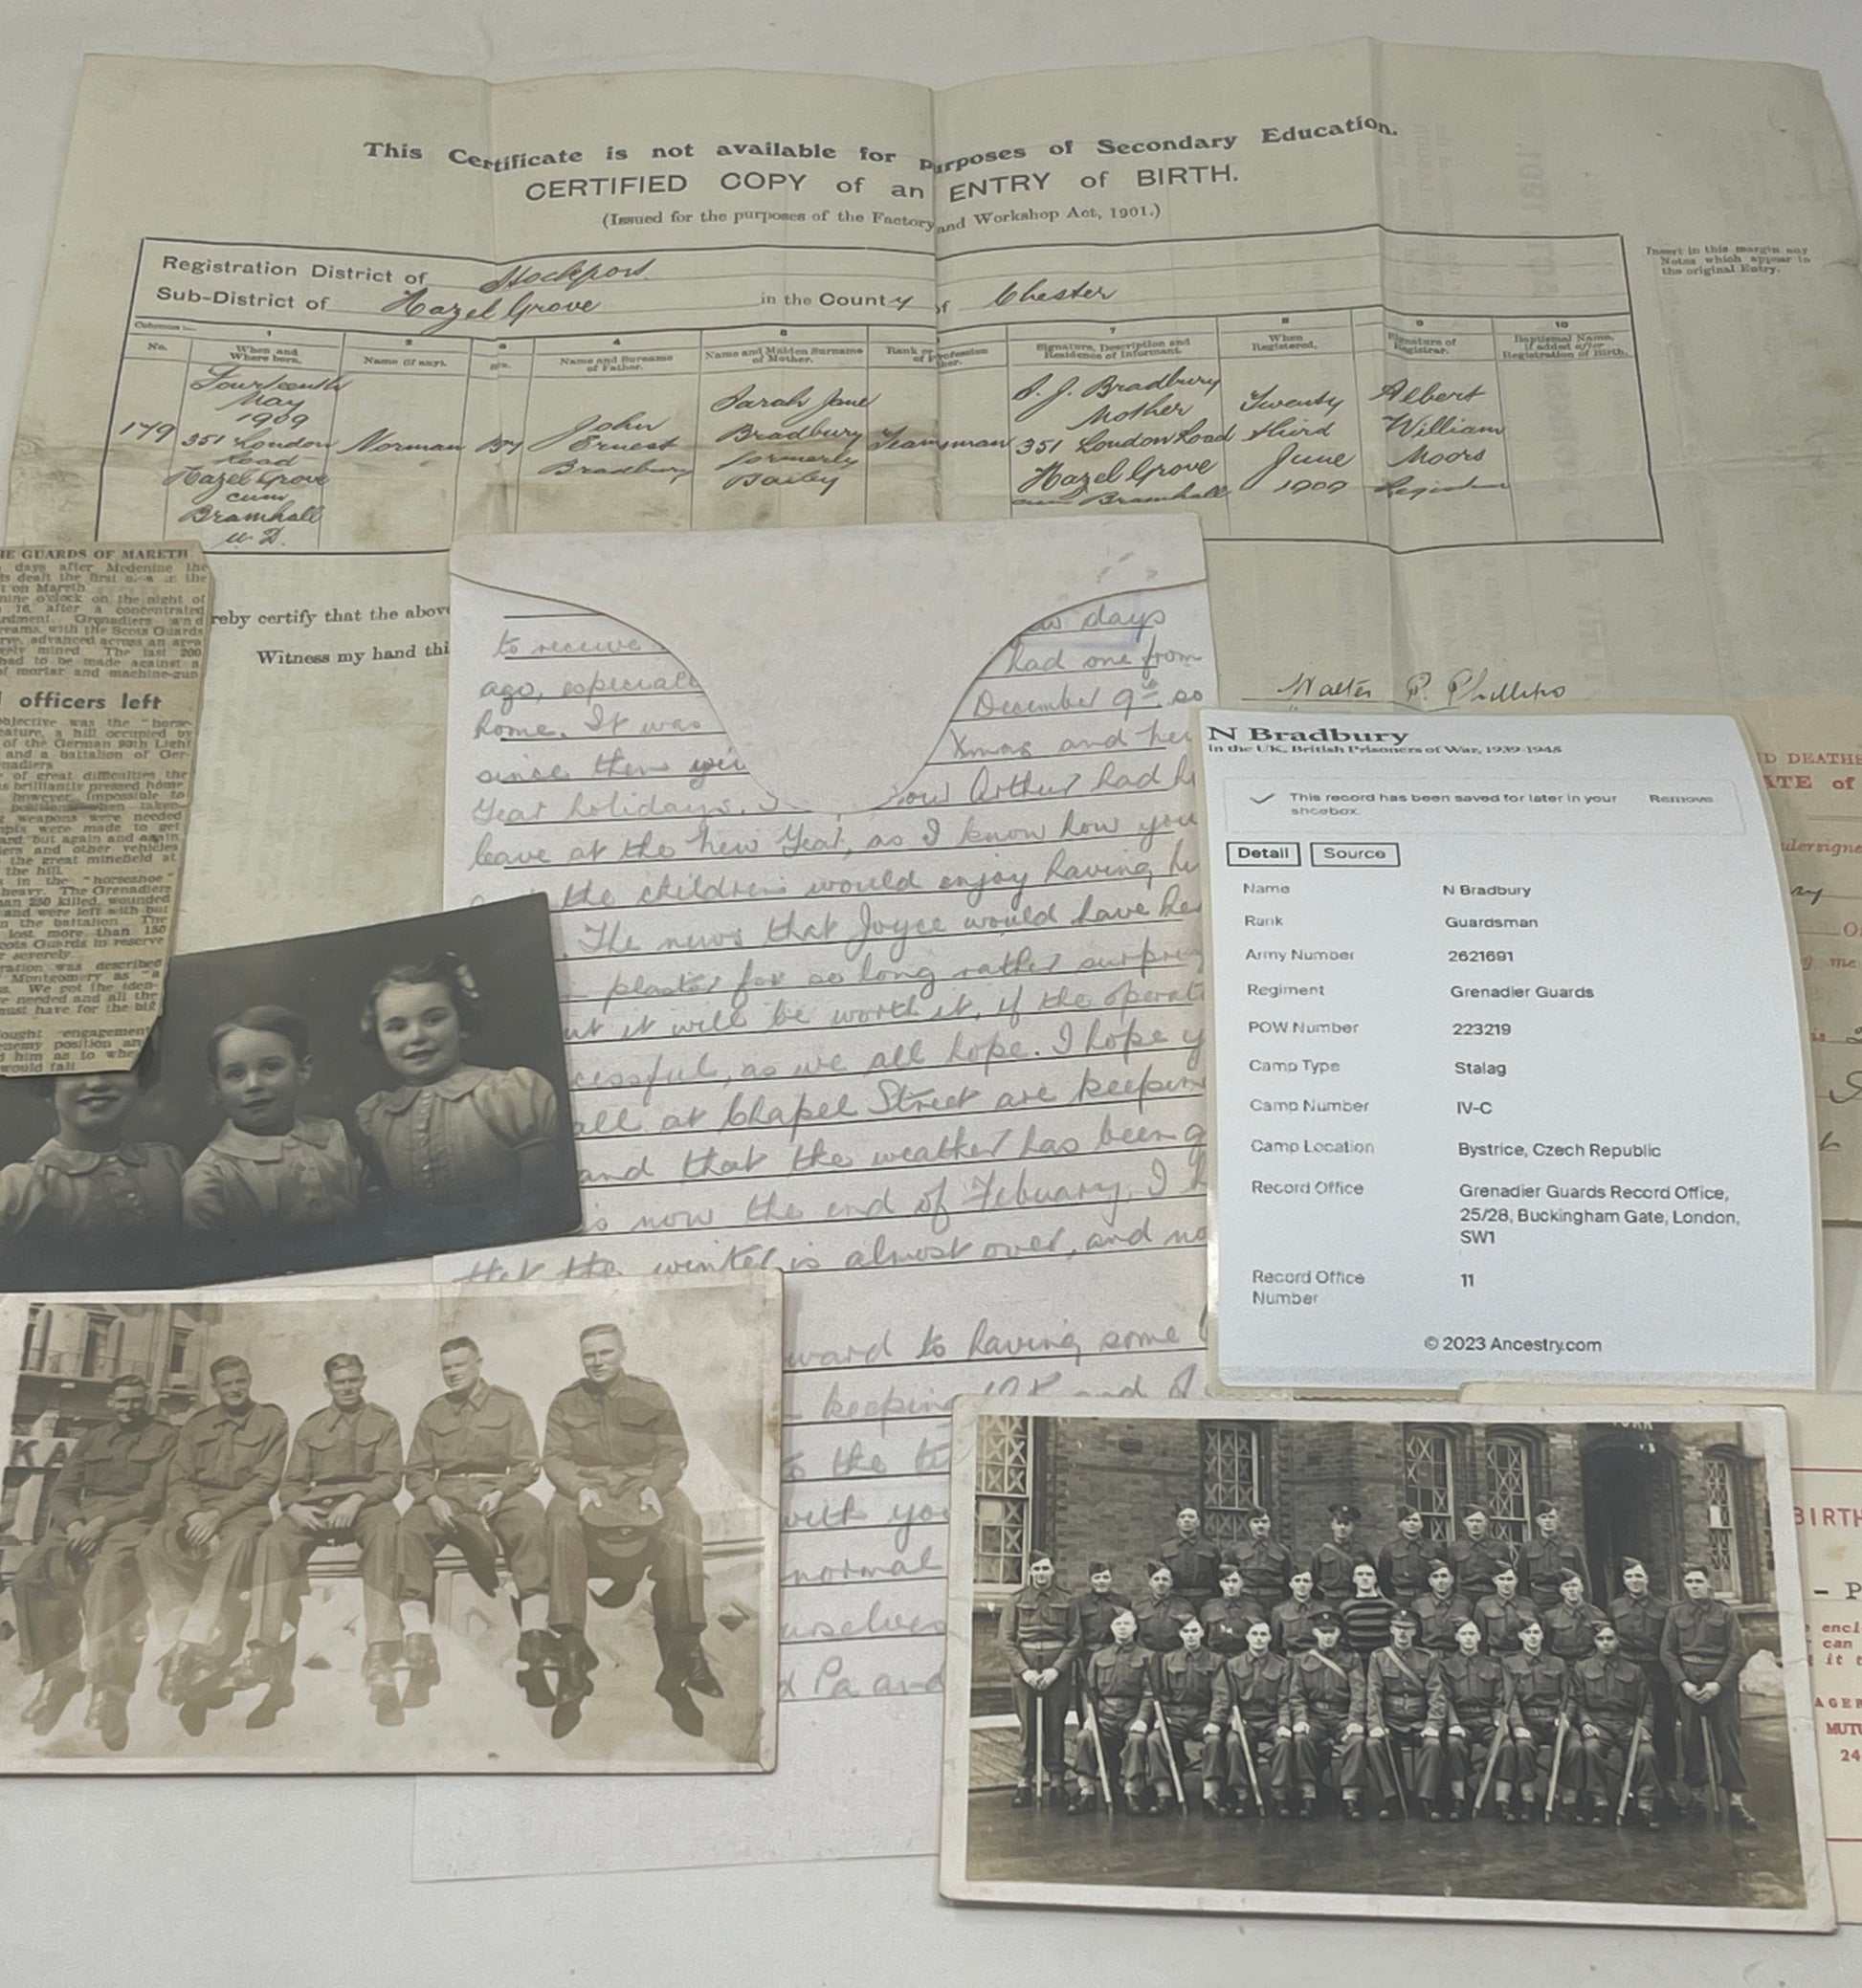 This Certificate is not available for purposes of Secondary Education.
CERTIFIED COPY of an ENTRY of BIRTH.
(Issued for the purposes of the Factory and Workshop Act, 1901.)
Insert in this margin any
Notes which appear in
the original Entry.
Registration District of Stockport
Sub-District of Hazel Grove in the County of Chester
Columns:— 1 2 3 4 5 7 8 9 10
No.
When and
Where born.
Name (if any).
Name and Surname
of Father.
Name and Maiden Surname
of Mother.
Rank or Profession
of
Signature, Description and
Residence of Informant.
When
Registered.
Signature of
Registrar.
Baptismal Name,
if added after
Registration of Birth.
179
Fourteenth
May
1909
351 London
Road
Hazel Grove
cum
Bramhall
U. D.
Norman
Boy
John
Ernest
Bradbury
Sarah Jane
Bradbury
formerly
Bailey
Teamsman
S. J. Bradbury
Mother
351 London Road
Hazel Grove
cum Bramhall
Twenty
third
June
1909
Albert
William
Moors
Registrar
reby certify that the above
Witness my hand thi
Walter P. Phillips
HE GUARDS OF MARETH
days after Medenine the
ts dealt the first in the
t on Mareth
nine o'clock on the night of
16, after a concentrated
rdment, Grenadiers and
reams, with the Scots Guards
rve, advanced across an area
ely mined. The last 200
had to be made against a
of mortar and machine-gun
officers left
objective was the "horse-
eature, a hill occupied by
of the German 90th Light
and a battalion of Ger-
nadiers
of great difficulties the
s brilliantly pressed home
however, impossible to
position when taken
weapons were needed
mpts were made to get
ard, but again and again
iers and other vehicles
the great minefield at
the hill.
in the "horseshoe"
heavy. The Grenadiers
an 250 killed, wounded
and were left with but
n the battalion. The
lost more than 150
cots Guards in reserve
severely.
ration was described
Montgomery as "a
s. We got the iden-
e needed and all the
must have for the big
ought engagement
enemy position an
d him as to whe
would fall
ew days
to receive
had one from
ago, especiall
December 9th so
home. It was
Xmas and her
since then
Year holidays.
Arthur had h
leave at the New Year, as I know how you
the children would enjoy having h
The news that Joyce would have her
plaster for so long rather surpris
ut it will be worth it, if the operati
cessful, as we all hope. I hope y
all at Chapel Street are keeping
and that the weather has been g
is now the end of Febuary, I h
that the winter is almost over, and no
ward to having some
keeping O.K. and
to the
with you
normal
urselves
d Pa and
N Bradbury
in the UK, British Prisoners of War, 1939-1945
This record has been saved for later in your
shoebox.
Remove
Detail Source
Name N Bradbury
Rank Guardsman
Army Number 2621691
Regiment Grenadier Guards
POW Number 223219
Camp Type Stalag
Camp Number IV-C
Camp Location Bystrice, Czech Republic
Record Office Grenadier Guards Record Office,
25/28, Buckingham Gate, London,
SW1
Record Office
Number
11
© 2023 Ancestry.com
D DEATHS
ATE of
dersigne
me
KA
YORK
BIRTH
- P
encl
can
it t
AGER
MUTU
24